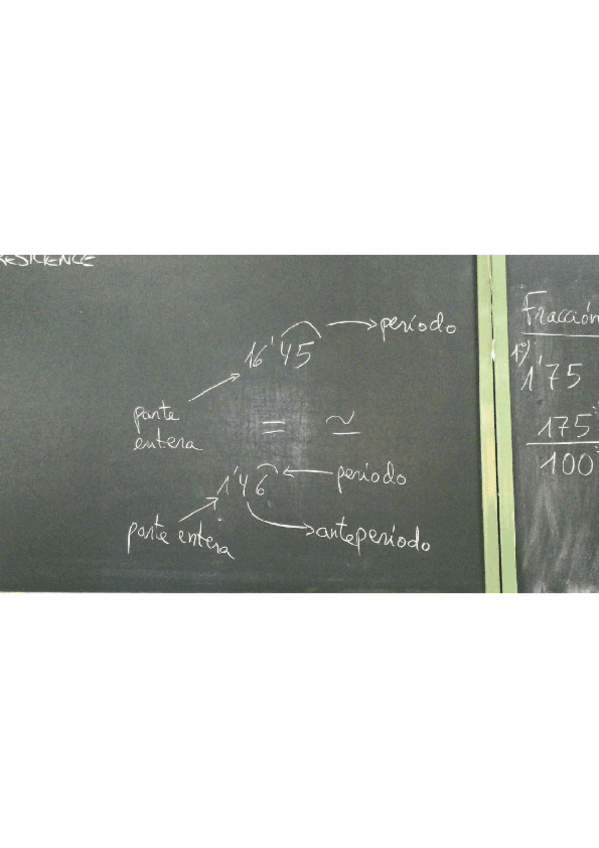 RESILIENCE
período
16'45
parte
entera
= ≃
1'46
período
parte entera
anteperíodo
Fracción
1º)
1'75
175
100